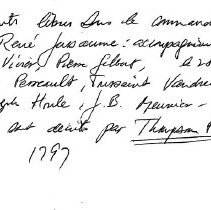 libres sous le commande
René Jussaume : accompagnement
Pierre Gilbert, le
Perreault, Toussaint Vaudre
Houle, J.B. Meunier -
sont décrits par Thompson
1797